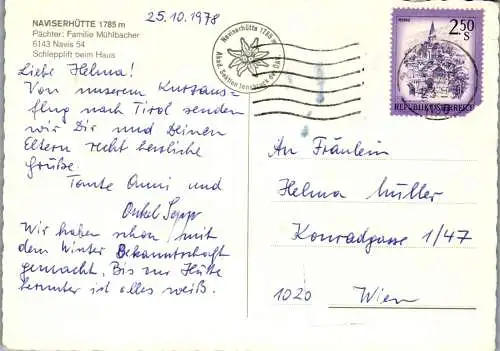 NAVISERHÜTTE 1785 m
Pächter: Familie Mühlbacher
6143 Navis 54
Schlepplift beim Haus
25.10.1978
Liebe Helma!
Von unserem Kurzaus
flug nach Tirol senden
wir Dir und Deinen
Eltern recht herzliche
Grüße.
Tante Anni und
Onkel Sepp
Wir haben schon mit
dem Winter Bekanntschaft
gemacht. Bis zur Hütte
herunter ist alles weiß.
Naviserhütte 1785 m
Akad. Sektion Innsbruck des ÖAV
2.50
S
REPUBLIK ÖSTERREICH
An Fräulein
Helma Müller
Konradgasse 1/47
1020 Wien